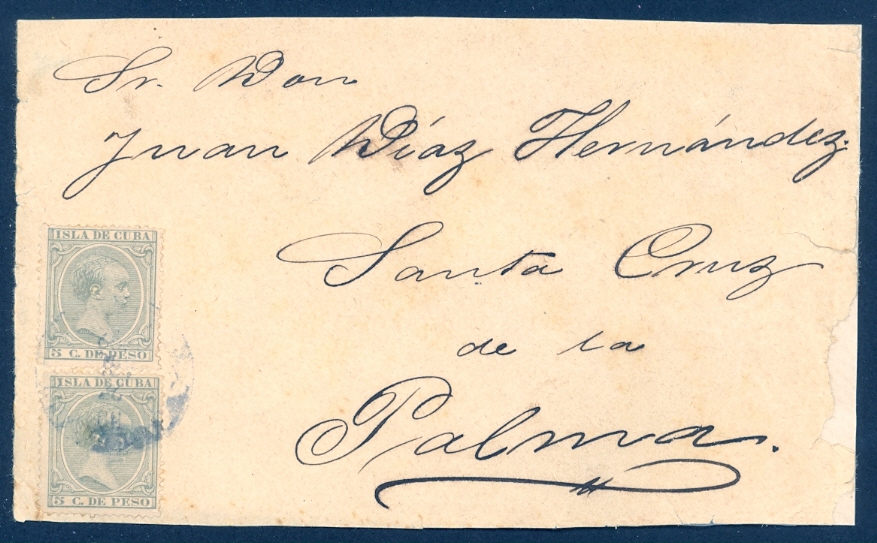 Sr. Don
Juan Díaz Hernández.
Santa Cruz
de la
Palma.
ISLA DE CUBA
5 C. DE PESO
ISLA DE CUBA
5 C. DE PESO